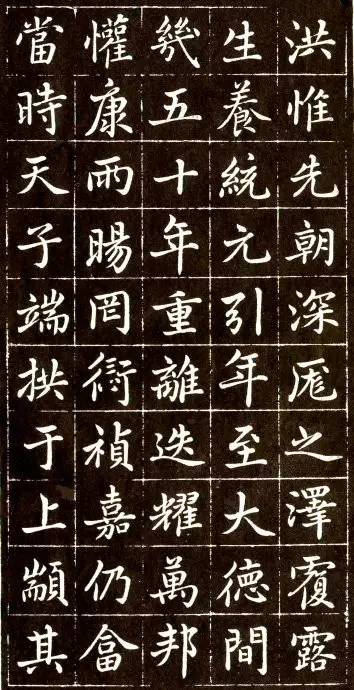 洪惟先朝深厖之澤覆露
生養統元引年至大德間
幾五十年重離迭耀萬邦
懽康雨暘罔禎嘉仍畣
當時天子端拱于上顓其